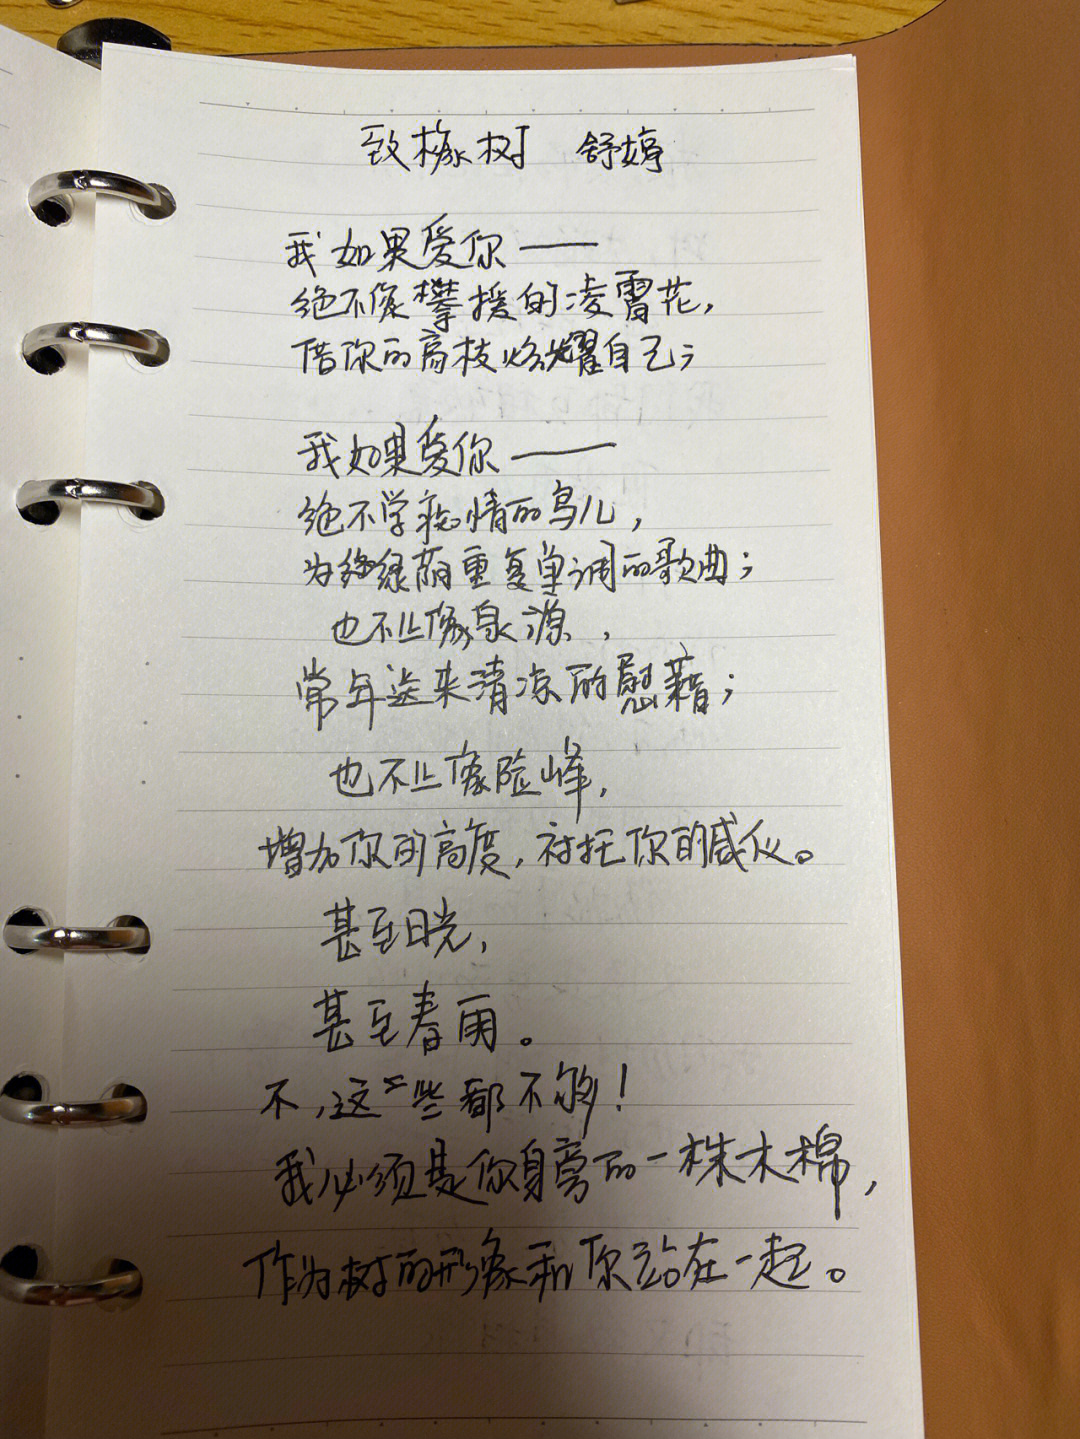 致橡树 舒婷
我如果爱你——
绝不像攀援的凌霄花，
借你的高枝炫耀自己；
我如果爱你——
绝不学痴情的鸟儿，
为绿荫重复单调的歌曲；
也不止像泉源，
常年送来清凉的慰藉；
也不止像险峰，
增加你的高度，衬托你的威仪。
甚至日光，
甚至春雨。
不，这些都不够！
我必须是你身旁的一株木棉，
作为树的形象和你站在一起。